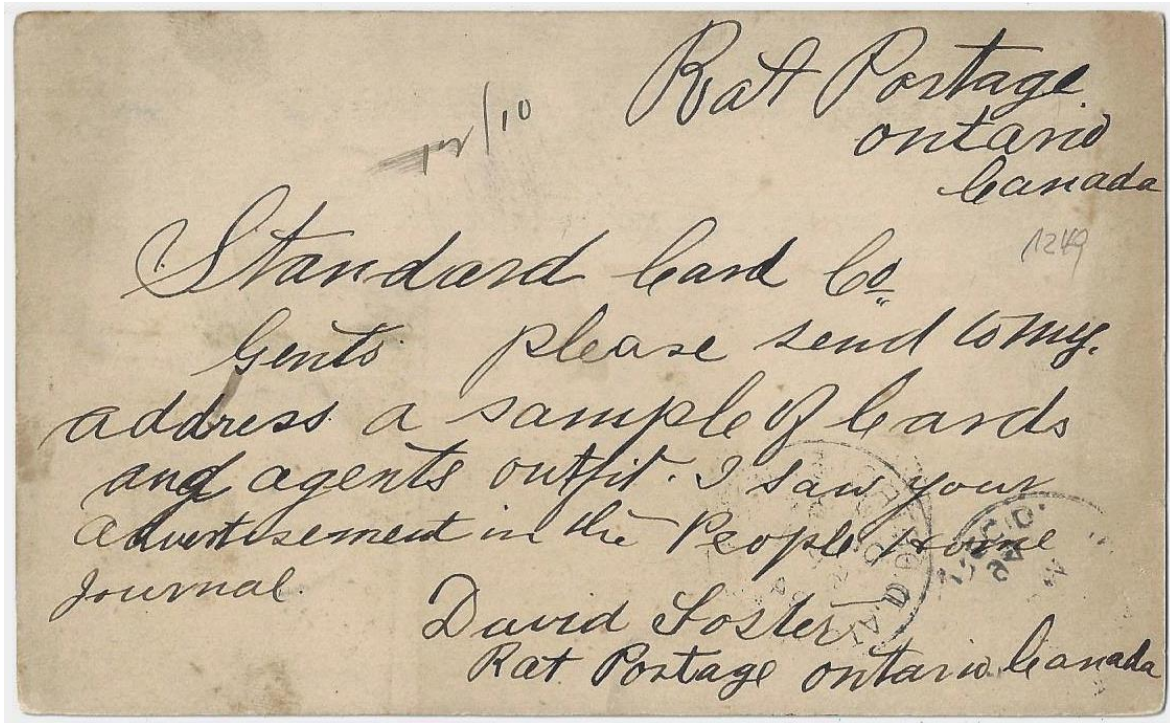 Rat Postage
ontario
Canada
/10
1249
Standard Card Co.
Gents please send to my.
address a sample of Cards
and agents outfit. I saw your
advertisement in the People Home
Journal.
David Foster
Rat Postage ontario. Canada